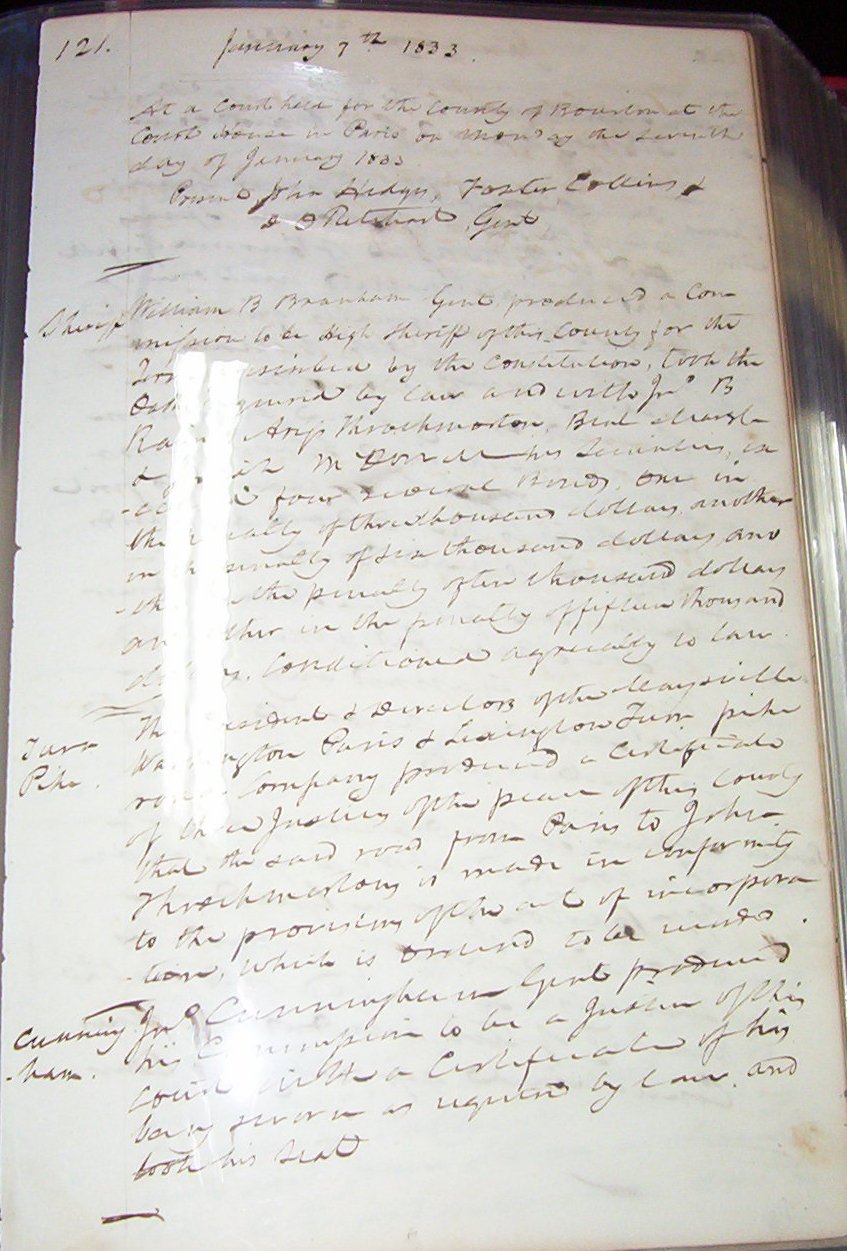 121. January 7th 1833.
At a Court held for the County of Bourbon at the
Court House in Paris on Monday the Seventh
day of January 1833
Present John Hedges, Foster Collins, &
Gent
Sheriff William B Branham Gent produced a Com-
mission to be High Sheriff of this County for the
by the Constitution, took the
by law and with Jno B
Throckmorton,
his Securities, ex
four several Bonds, one in
the of three thousand dollars, another
in penalty of six thousand dollars and
the penalty of ten thousand dollars
in the penalty of fifteen thousand
Conditioned agreeably to law.
Turn The & Directors of the Maysville
Pike. Paris & Lexington Turn pike
Company produced a Certificate
of three Justices of the peace of this County
that the said road from Paris to John
Throckmortons is made in conformity
to the provisions of the act of incorpora
-tion, which is ordered to be
Cunning Jno Cunningham Gent produced
-ham. his Commission to be a Justice of this
Court with a Certificate of his
being sworn as required by law and
took his seat